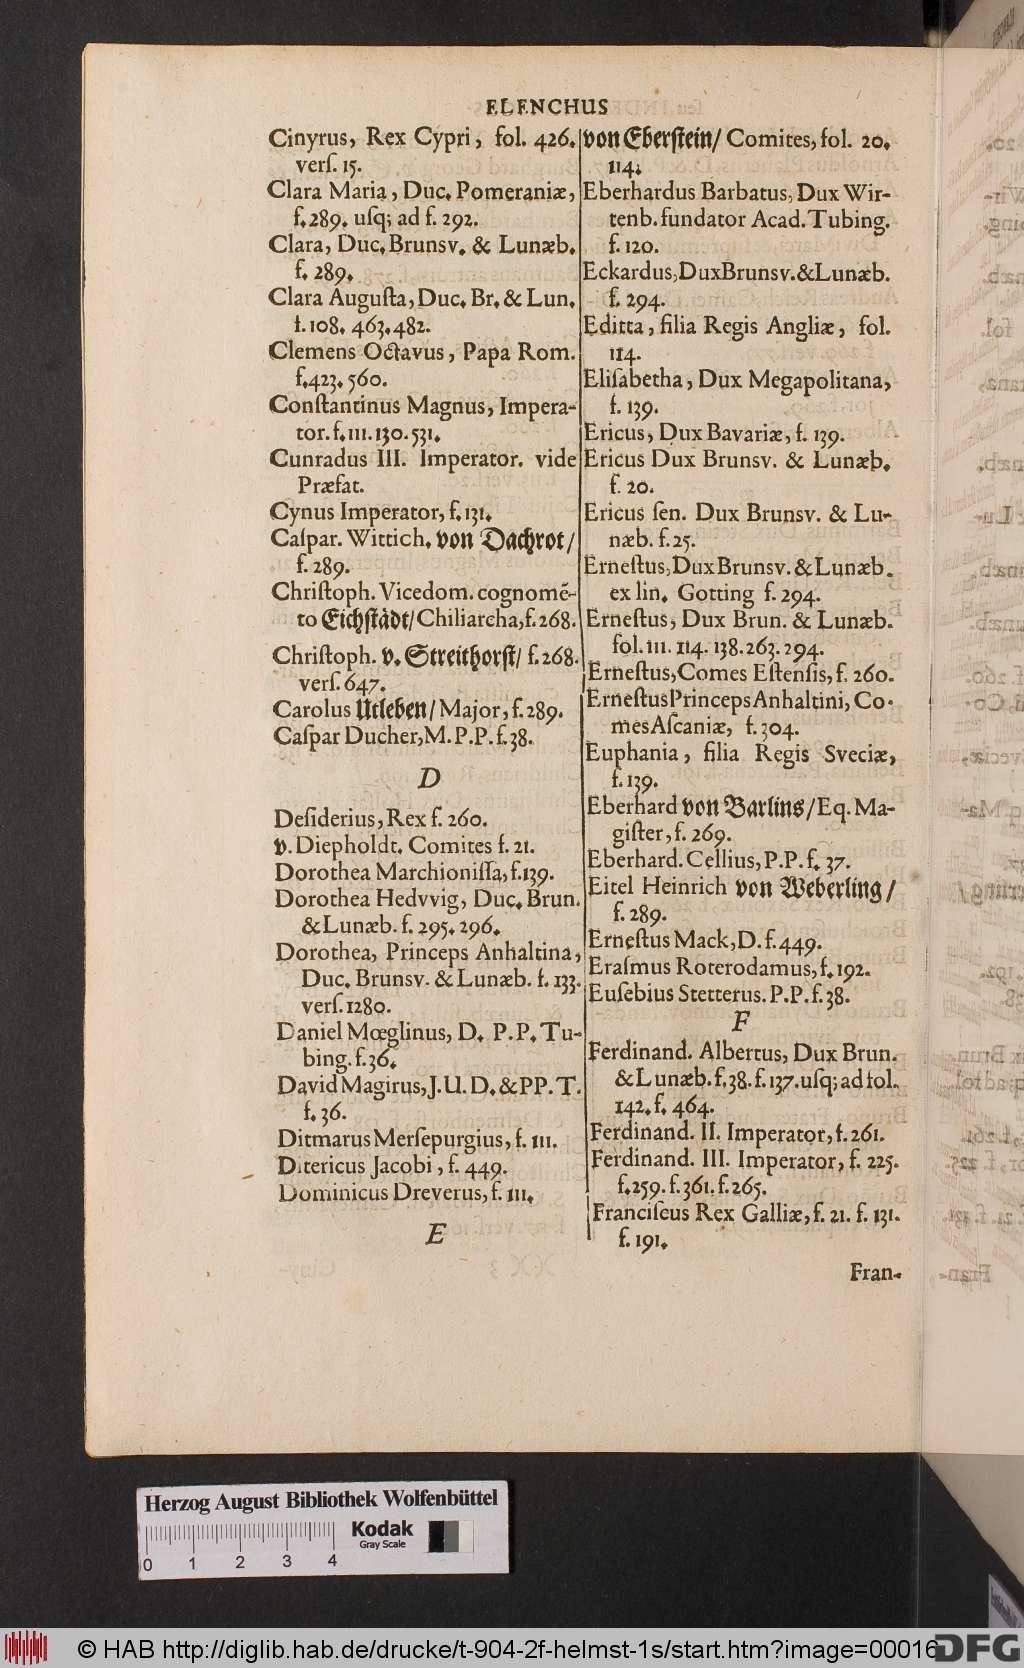 ELENCHUS
Cinyrus, Rex Cypri, fol. 426.
verſ. 15.
Clara Maria, Duc. Pomeraniæ,
f. 289. uſq; ad f. 292.
Clara, Duc. Brunsv. & Lunæb.
f. 289.
Clara Auguſta, Duc. Br. & Lun.
f. 108. 463. 482.
Clemens Octavus, Papa Rom.
f. 423. 560.
Conſtantinus Magnus, Impera-
tor. f. 111. 130. 531.
Cunradus III. Imperator. vide
Præfat.
Cynus Imperator, f. 131.
Caſpar. Wittich. von Dachrot/
f. 289.
Chriſtoph. Vicedom. cognomē-
to Eichſtådt/ Chiliarcha, f. 268.
Chriſtoph. v. Streithorſt/ f. 268.
verſ. 647.
Carolus Utleben/ Major, f. 289.
Caſpar Ducher, M. P. P. f. 38.
D
Deſiderius, Rex f. 260.
v. Diepholdt. Comites f. 21.
Dorothea Marchioniſſa, f. 139.
Dorothea Hedvvig, Duc. Brun.
& Lunæb. f. 295. 296.
Dorothea, Princeps Anhaltina,
Duc. Brunsv. & Lunæb. f. 133.
verſ. 1280.
Daniel Mœglinus, D. P. P. Tu-
bing. f. 36.
David Magirus, J. U. D. & PP. T.
f. 36.
Ditmarus Merſepurgius, f. 111.
Ditericus Jacobi, f. 449.
Dominicus Dreverus, f. 111.
E
von Eberſtein/ Comites, fol. 20.
114.
Eberhardus Barbatus, Dux Wir-
tenb. fundator Acad. Tubing.
f. 120.
Eckardus, Dux Brunsv. & Lunæb.
f. 294.
Editta, filia Regis Angliæ, fol.
114.
Eliſabetha, Dux Megapolitana,
f. 139.
Ericus, Dux Bavariæ, f. 139.
Ericus Dux Brunsv. & Lunæb.
f. 20.
Ericus ſen. Dux Brunsv. & Lu-
næb. f. 25.
Erneſtus, Dux Brunsv. & Lunæb.
ex lin. Gotting f. 294.
Erneſtus, Dux Brun. & Lunæb.
fol. 111. 114. 138. 263. 294.
Erneſtus, Comes Eſtenſis, f. 260.
Erneſtus Princeps Anhaltini, Co-
mes Aſcaniæ, f. 304.
Euphania, filia Regis Sveciæ,
f. 139.
Eberhard von Barlins/ Eq. Ma-
giſter, f. 269.
Eberhard. Cellius, P. P. f. 37.
Eitel Heinrich von Weberling/
f. 289.
Erneſtus Mack, D. f. 449.
Eraſmus Roterodamus, f. 192.
Euſebius Stetterus. P. P. f. 38.
F
Ferdinand. Albertus, Dux Brun.
& Lunæb. f. 38. f. 137. uſq; ad fol.
142. f. 464.
Ferdinand. II. Imperator, f. 261.
Ferdinand. III. Imperator, f. 225.
f. 259. f. 361. f. 265.
Franciſcus Rex Galliæ, f. 21. f. 131.
f. 191.
Fran-
Herzog August Bibliothek Wolfenbüttel
Kodak
Gray Scale
0 1 2 3 4
© HAB http://diglib.hab.de/drucke/t-904-2f-helmst-1s/start.htm?image=00016
DFG